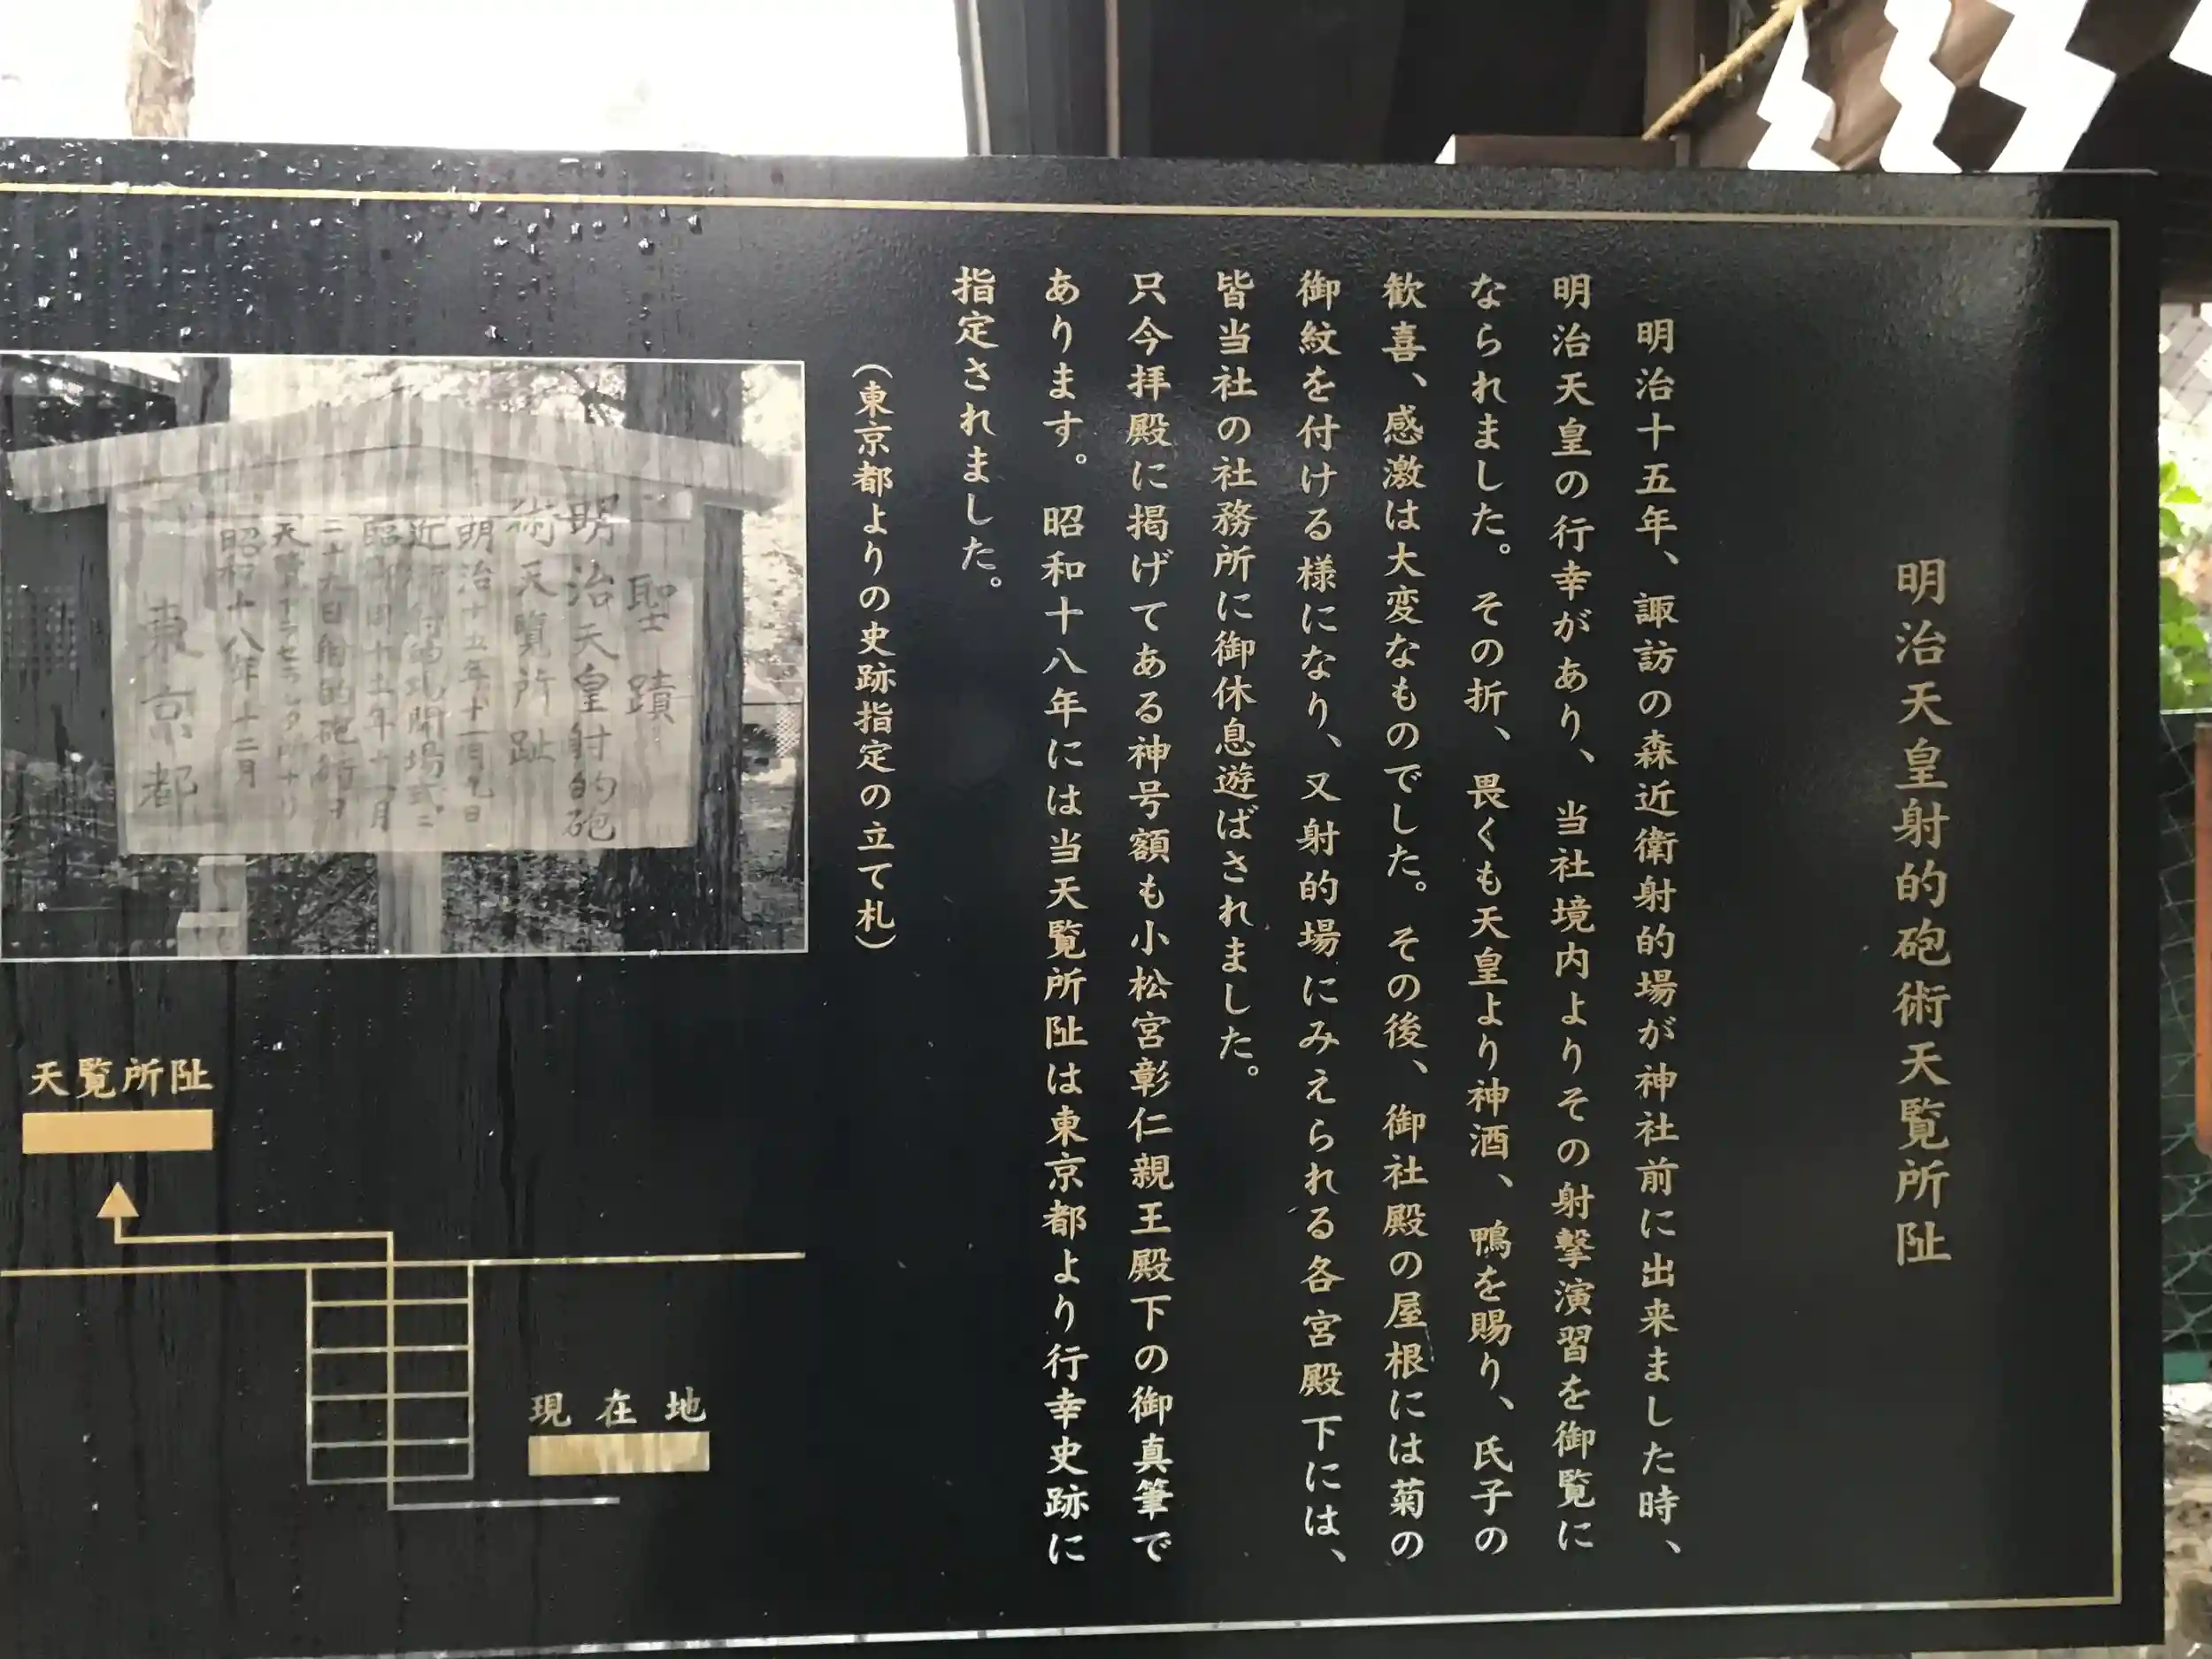 明治天皇射的砲術天覧所阯
明治十五年、諏訪の森近衛射的場が神社前に出来ました時、
明治天皇の行幸があり、当社境内よりその射撃演習を御覧に
なられました。その折、畏くも天皇より神酒、鴨を賜り、氏子の
歓喜、感激は大変なものでした。その後、御社殿の屋根には菊の
御紋を付ける様になり、又射的場にみえられる各宮殿下には、
皆当社の社務所に御休息遊ばされました。
只今拝殿に掲げてある神号額も小松宮彰仁親王殿下の御真筆で
あります。昭和十八年には当天覧所阯は東京都より行幸史跡に
指定されました。
（東京都よりの史跡指定の立て札）
聖蹟
明治天皇射的砲
術天覧所趾
明治十五年十一月九日
近衛射的場開場式ニ
臨御同十七年十一月
二十九日射的砲術ヲ
天覧アラセラレタ所ナリ
昭和十八年十二月
東京都
天覧所阯
現在地